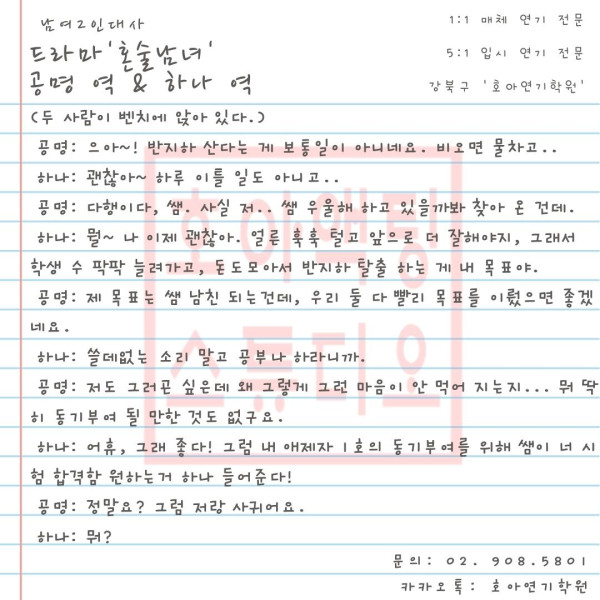 남여2인대사
1:1 매체 연기 전문
드라마'혼술남녀'
5:1 입시 연기 전문
공명 역 & 하나 역
강북구 '호아연기학원'
(두 사람이 벤치에 앉아 있다.)
공명: 으아~! 반지하 산다는 게 보통일이 아니네요. 비오면 물차고..
하나: 괜찮아~ 하루 이틀 일도 아니고..
공명: 다행이다, 쌤. 사실 저.. 쌤 우울해 하고 있을까봐 찾아 온 건데.
하나: 뭘~ 나 이제 괜찮아. 얼른 훅훅 털고 앞으로 더 잘해야지, 그래서
학생 수 팍팍 늘려가고, 돈도모아서 반지하 탈출 하는 게 내 목표야.
공명: 제 목표는 쌤 남친 되는건데, 우리 둘 다 빨리 목표를 이뤘으면 좋겠
네요.
하나: 쓸데없는 소리 말고 공부나 하라니까.
공명: 저도 그러곤 싶은데 왜 그렇게 그런 마음이 안 먹어 지는지... 뭐 딱
히 동기부여 될 만한 것도 없구요.
하나: 어휴, 그래 좋다! 그럼 내 애제자 1호의 동기부여를 위해 쌤이 너 시
험 합격함 원하는거 하나 들어준다!
공명: 정말요? 그럼 저랑 사귀어요.
하나: 뭐?
호아액팅
스튜디오
문의: 02. 908.5801
카카오톡: 호아연기학원